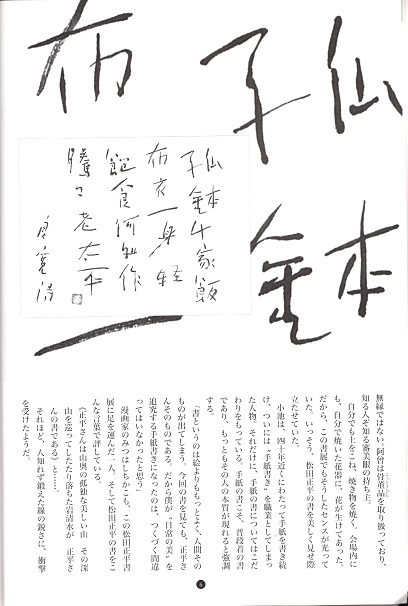 孤鉢
布一
孤鉢千家飯
布衣一身軽
飽食何所作
騰々老太平
良寛詩
無縁ではない。阿曾は骨董品を取り扱っており、
知る人ぞ知る審美眼の持ち主。
自分でも土をこね、焼き物を焼く。会場内に
も、自分で焼いた花器に、花が生けてあった。
だから、この書展でもそうしたセンスが光って
いた。いっそう、松田正平の書を美しく見せ際
立たせていた。
小池は、四十年近くにわたって手紙を書き続
け、ついには〝手紙書き〟を職業としてしまっ
た人物。それだけに、手紙の書についてはこだ
わりをもっている。手紙の書こそ、普段着の書
であり、もっともその人の本質が現れると強調
する。
「書というのは絵よりももっとよく、人間その
ものが出てしまう。今回の書を見ても、正平さ
んそのものである。だから僕が〝日常の美〟を
追究する手紙書きになったのは、つくづく間違
ってはいなかったと思う」
漫画家のみつはしちかこも、この松田正平書
展に足を運んだ一人。そして松田正平の書をこ
んな言葉で評している。
《正平さんは山奥の孤独な美しい山　その深
山を巡ってしたたり落ちた岩清水が　正平さ
んの書である》と……。
それほど、人知れず鍛えた線の鋭さに、衝撃
を受けたようだ。
6